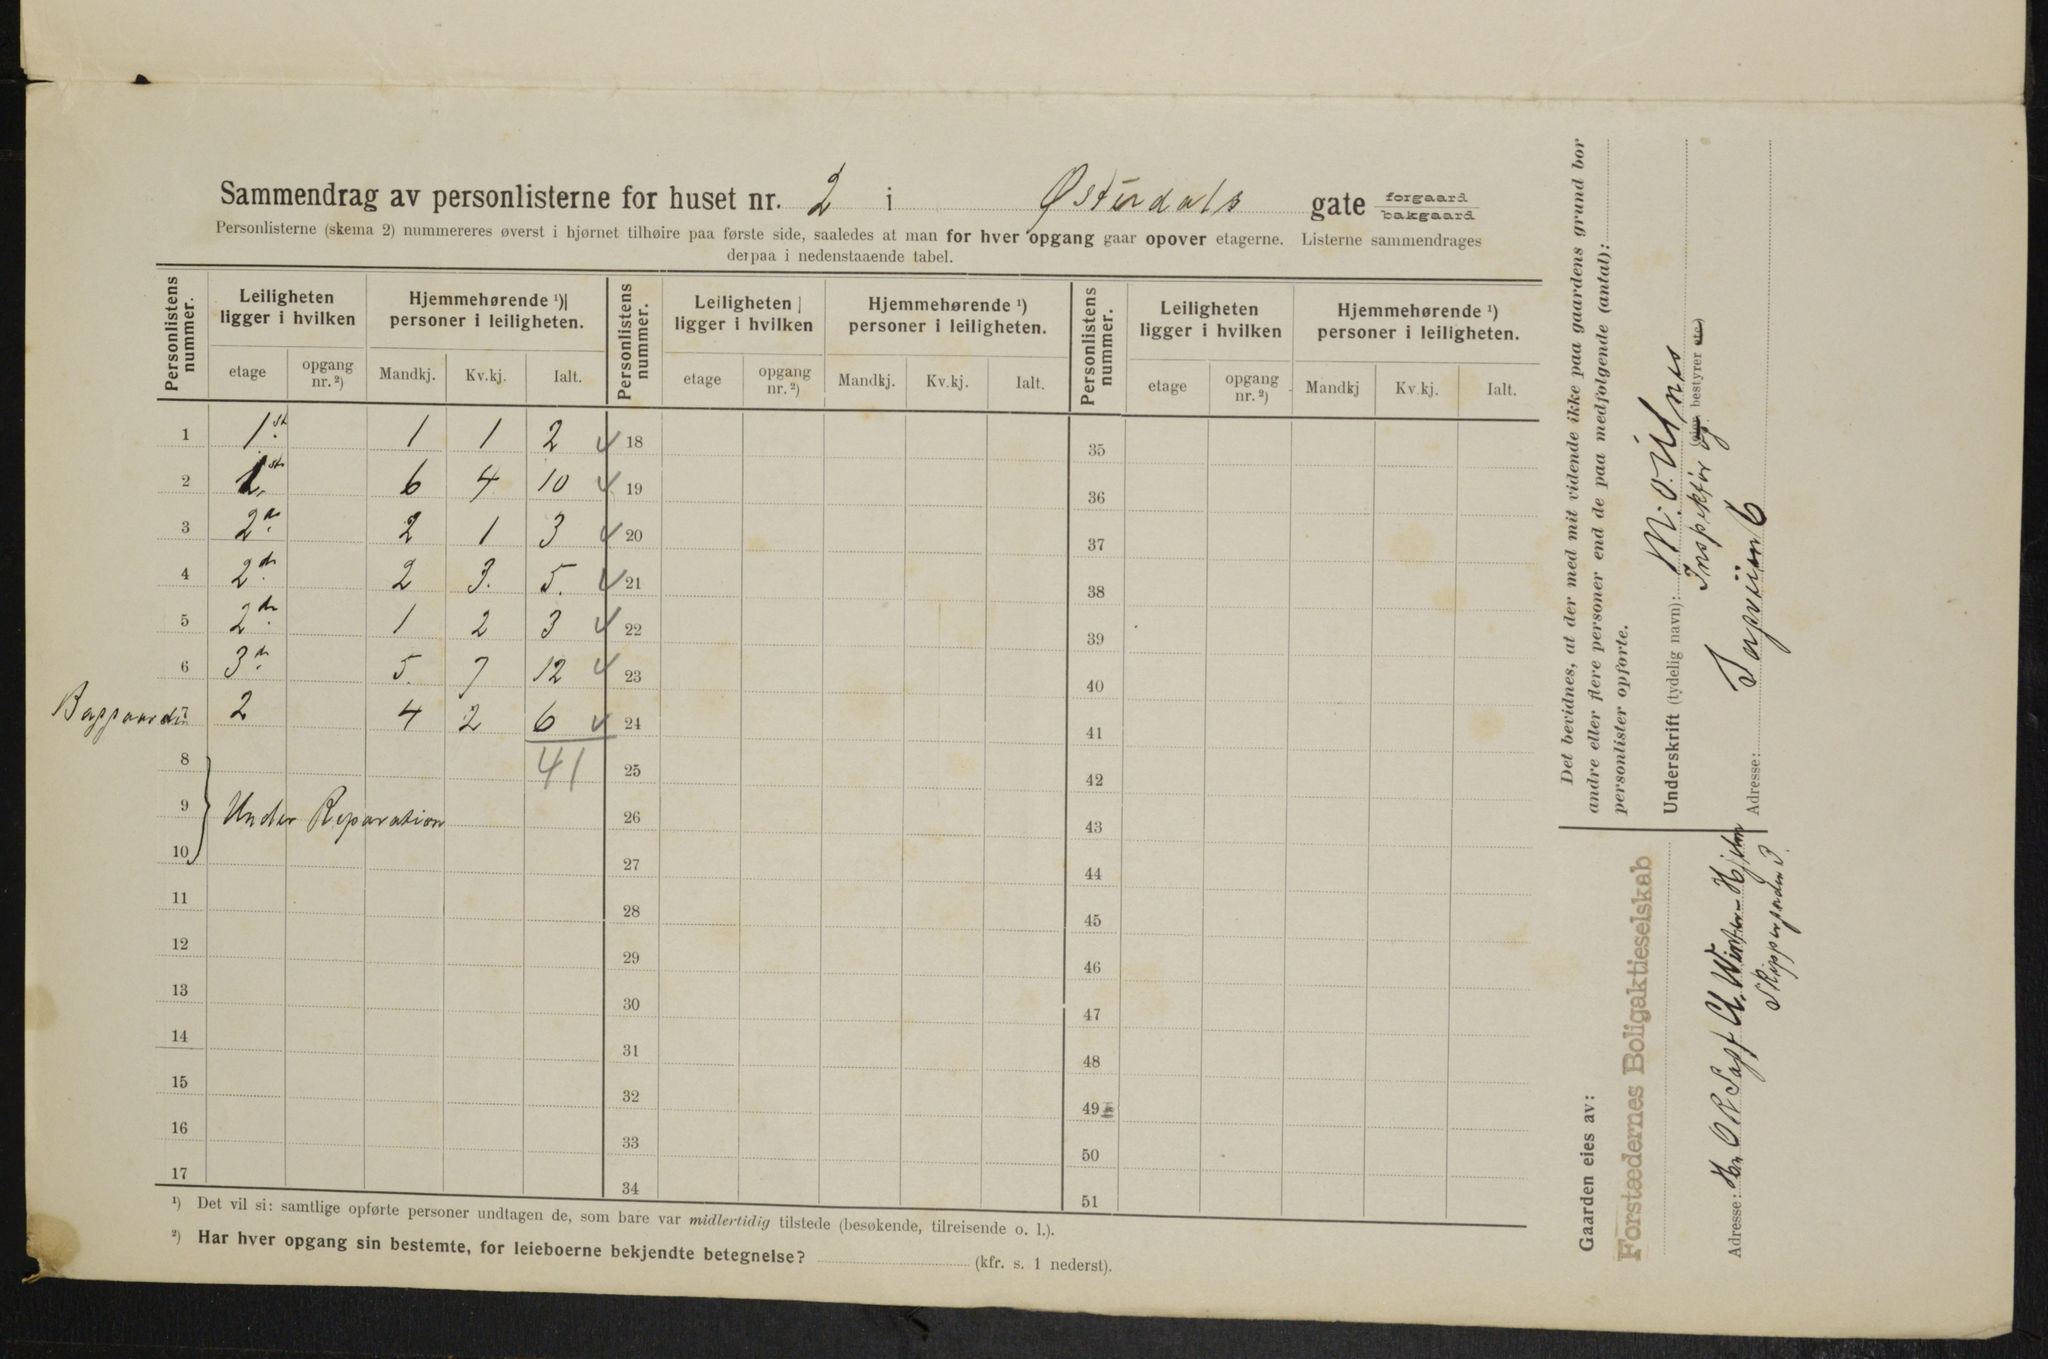 Sammendrag av personlisterne for huset nr. 2 i Østerdals gate forgaard bakgaard
Personlisterne (skema 2) nummereres øverst i hjørnet tilhøire paa første side, saaledes at man for hver opgang gaar opover etagerne. Listerne sammendrages
derpaa i nedenstaaende tabel.
Personlistens nummer. Leiligheten ligger i hvilken Hjemmehørende ¹) personer i leiligheten. Personlistens nummer. Leiligheten ligger i hvilken Hjemmehørende ¹) personer i leiligheten. Personlistens nummer. Leiligheten ligger i hvilken Hjemmehørende ¹) personer i leiligheten.
etage opgang nr. ²) Mandkj. Kv.kj. Ialt. etage opgang nr. ²) Mandkj. Kv.kj. Ialt. etage opgang nr. ²) Mandkj Kv.kj. Ialt.
1 1st. 1 1 2 18 35
2 1st. 6 4 10 19 36
3 2d. 2 1 3 20 37
4 2d. 2 3. 5. 21 38
5 2d. 1 2 3 22 39
6 3d. 5. 7 12 23 40
Baggaarden 7 2 4 2 6 24 41
8 41 25 42
9 Under Reparation 26 43
10 27 44
11 28 45
12 29 46
13 30 47
14 31 48
15 32 49
16 33 50
17 34 51
¹) Det vil si: samtlige opførte personer undtagen de, som bare var midlertidig tilstede (besøkende, tilreisende o. l.).
²) Har hver opgang sin bestemte, for leieboerne bekjendte betegnelse? (kfr. s. 1 nederst).
Det bevidnes, at der med mit vidende ikke paa gaardens grund bor
andre eller flere personer end de paa medfølgende (antal):
personlister opførte.
Underskrift (tydelig navn): M. O. Utnes
Inspektør (eier bestyrer etc.)
Adresse: 6
Gaarden eies av:
Forstædernes Boligaktieselskab
Adresse: Hr. O R Sagf. U. Winter-Hjelm
Skippergaden 3.